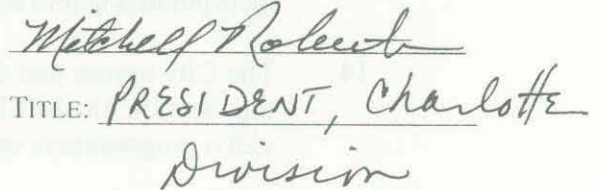 Mitchell Roberts
TITLE: PRESIDENT, Charlotte
Division